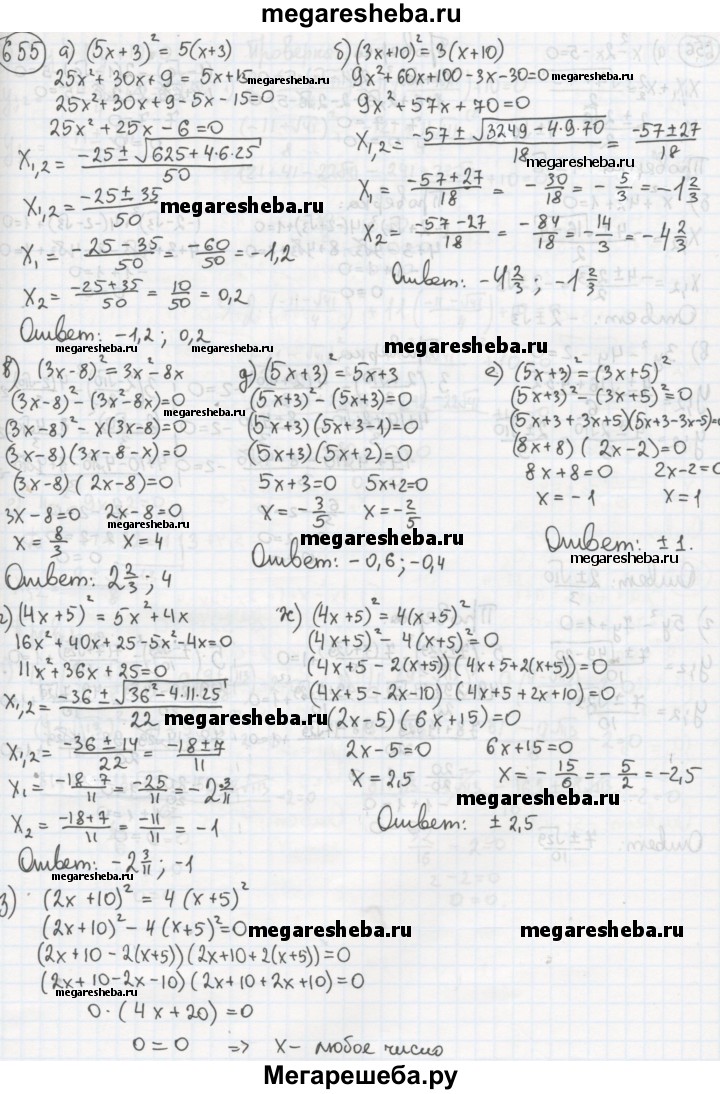 megaresheba.ru
655 а) (5x+3)² = 5(x+3)
25x² + 30x + 9 = 5x + 15
megaresheba.ru
25x² + 30x + 9 - 5x - 15 = 0
25x² + 25x - 6 = 0
X₁,₂ = (-25 ± √(625 + 4·6·25))/50
X₁,₂ = (-25 ± 35)/50
megaresheba.ru
X₁ = (-25 - 35)/50 = -60/50 = -1,2
X₂ = (-25 + 35)/50 = 10/50 = 0,2
Ответ: -1,2 ; 0,2
megaresheba.ru megaresheba.ru
б) (3x+10)² = 3(x+10)
9x² + 60x + 100 - 3x - 30 = 0
megaresheba.ru
9x² + 57x + 70 = 0
X₁,₂ = (-57 ± √(3249 - 4·9·70))/18 = (-57 ± 27)/18
megaresheba.ru
X₁ = (-57 + 27)/18 = -30/18 = -5/3 = -1 2/3
X₂ = (-57 - 27)/18 = -84/18 = -14/3 = -4 2/3
Ответ: -4 2/3 ; -1 2/3
megaresheba.ru
в) (3x-8)² = 3x² - 8x
megaresheba.ru
(3x-8)² - (3x² - 8x) = 0
megaresheba.ru
(3x-8)² - x(3x-8) = 0
(3x-8)(3x-8-x) = 0
(3x-8)(2x-8) = 0
3x-8=0 2x-8=0
megaresheba.ru
x = 8/3 x = 4
Ответ: 2 2/3 ; 4
д) (5x+3)² = 5x+3
(5x+3)² - (5x+3) = 0
(5x+3)(5x+3-1) = 0
(5x+3)(5x+2) = 0
5x+3=0 5x+2=0
x = -3/5 x = -2/5
megaresheba.ru
Ответ: -0,6 ; -0,4
е) (5x+3)² = (3x+5)²
megaresheba.ru
(5x+3)² - (3x+5)² = 0
(5x+3+3x+5)(5x+3-3x-5)=0
(8x+8)(2x-2)=0
8x+8=0 2x-2=0
x = -1 x = 1
megaresheba.ru
Ответ: ±1.
г) (4x+5)² = 5x² + 4x
megaresheba.ru
16x² + 40x + 25 - 5x² - 4x = 0
11x² + 36x + 25 = 0
X₁,₂ = (-36 ± √(36² - 4·11·25))/22
megaresheba.ru
X₁,₂ = (-36 ± 14)/22 = (-18 ± 7)/11
X₁ = (-18 - 7)/11 = -25/11 = -2 3/11
X₂ = (-18 + 7)/11 = -11/11 = -1
Ответ: -2 3/11 ; -1
megaresheba.ru
ж) (4x+5)² = 4(x+5)²
(4x+5)² - 4(x+5)² = 0
(4x+5 - 2(x+5))(4x+5+2(x+5)) = 0
(4x+5-2x-10)(4x+5+2x+10) = 0
(2x-5)(6x+15) = 0
2x-5=0 6x+15=0
x = 2,5 x = -15/6 = -5/2 = -2,5
megaresheba.ru
Ответ: ±2,5
з) (2x+10)² = 4(x+5)²
(2x+10)² - 4(x+5)² = 0
megaresheba.ru megaresheba.ru
(2x+10-2(x+5))(2x+10+2(x+5)) = 0
(2x+10-2x-10)(2x+10+2x+10) = 0
megaresheba.ru
0·(4x+20) = 0
0 = 0 => x - любое число
Мегарешеба.ру